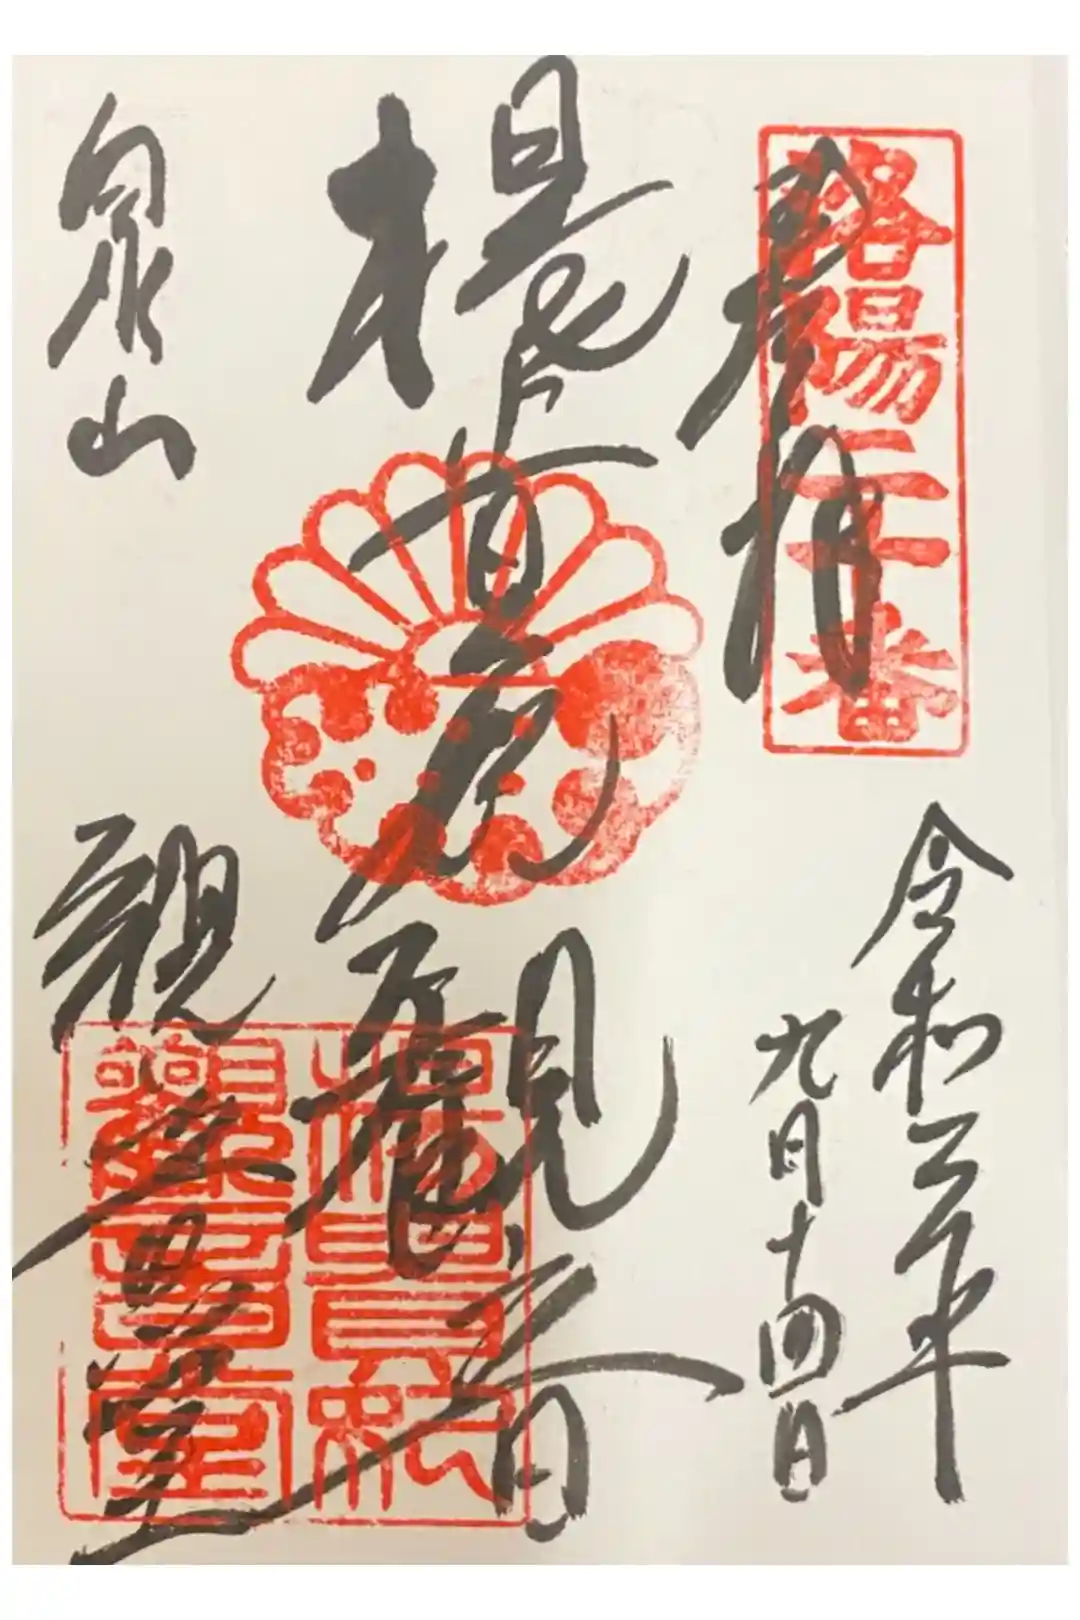 洛陽二十番
奉拝
令和三年
九月十四日
楊貴妃觀音
泉山
観音堂
楊貴妃
觀音堂